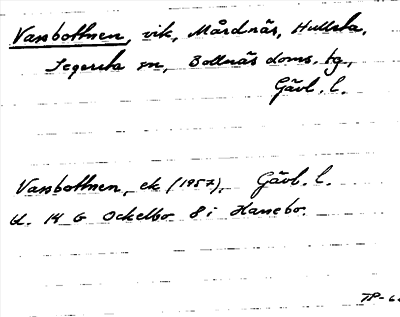 Vassbottnen, vik, Mårdnäs, Hullsta,
Segersta sn, Bollnäs doms. tg,
Gävl. l.
Vassbottnen, ek (1957), Gävl. l.
bl. 14 G Ockelbo 8 i Hanebo.
TP-6